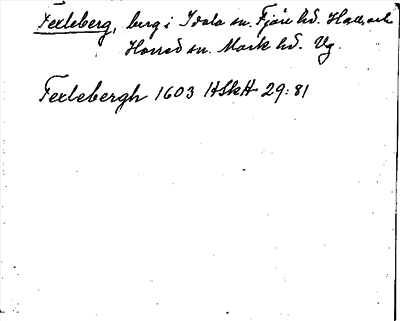 Fexleberg, berg i Idala sn. Fjäre hd. Hall. och
Horred sn. Mark hd. Vg.
Fexlebergh 1603 HSkH 29:81